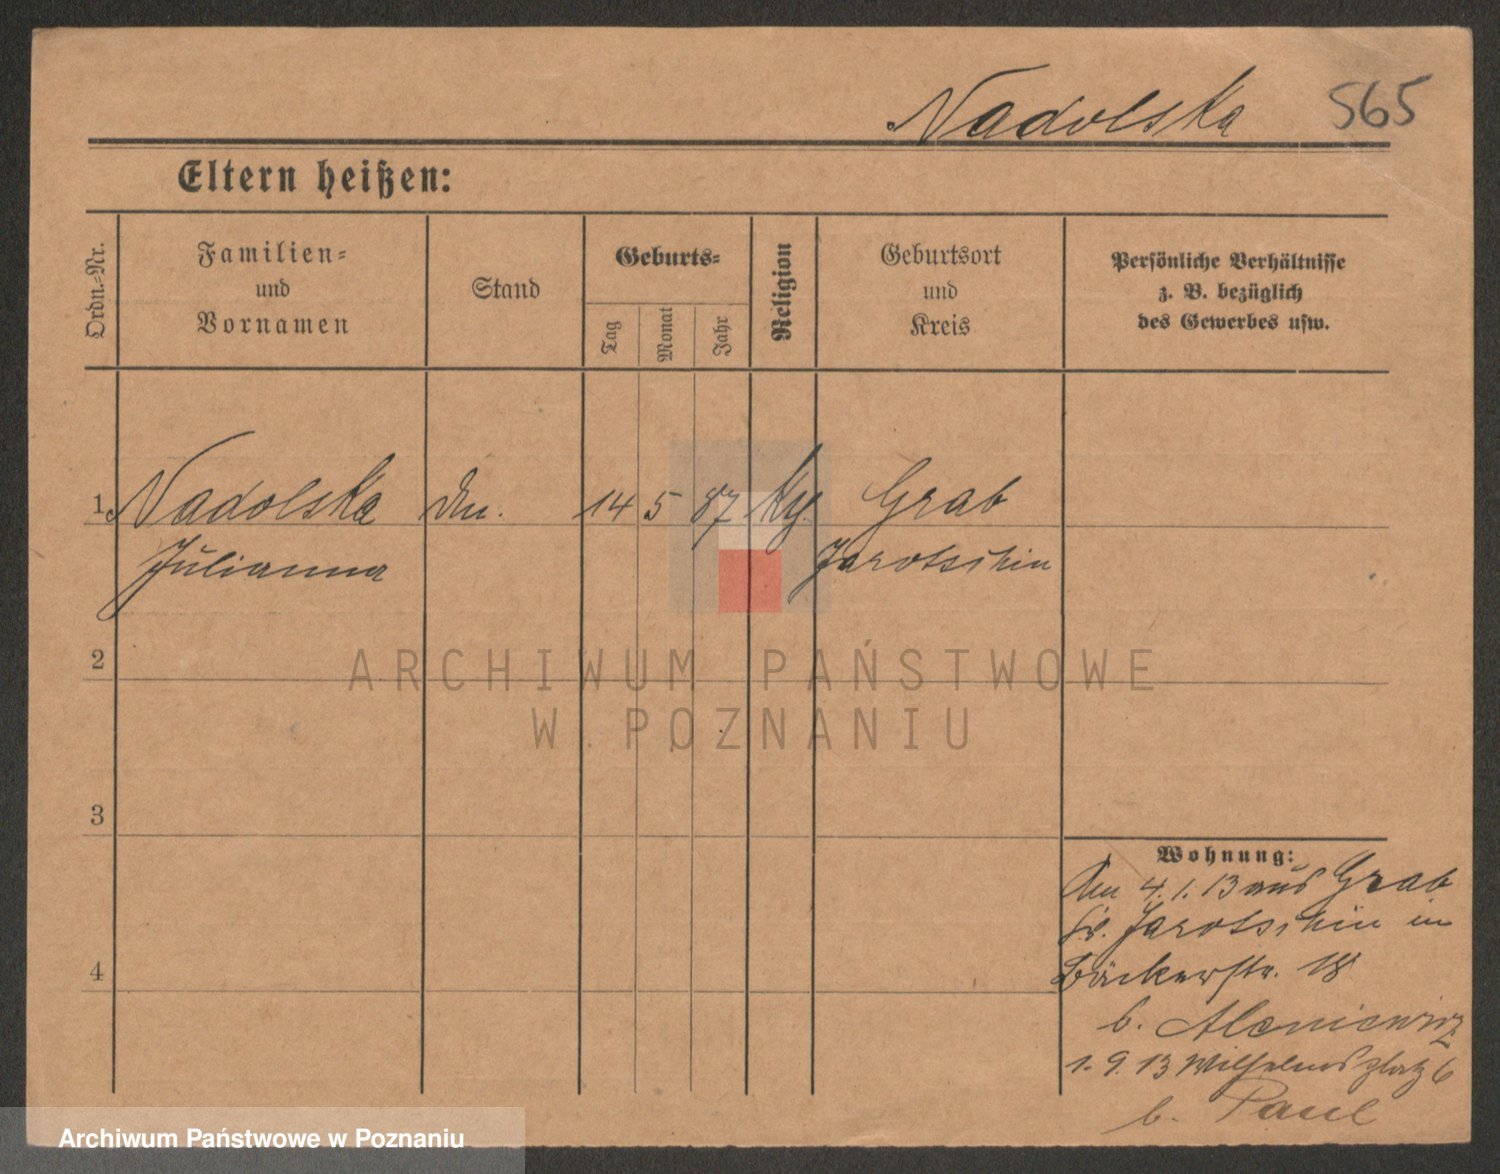 Nadolska 565
Eltern heißen:
Ordn.-Nr.
Familien-
und
Vornamen
Stand
Geburts-
Tag
Monat
Jahr
Religion
Geburtsort
und
Kreis
Persönliche Verhältnisse
z. B. bezüglich
des Gewerbes usw.
1 Nadolska 14 5 87 Grab
Julianna Jarotschin
2
ARCHIWUM PAŃSTWOWE
W POZNANIU
3
Wohnung:
4. 1. 13 aus Grab
Jarotschin in
4
Bäckerstr. 18
b.
1. 9. 13 Wilhelmsplatz 6
b. Paul
Archiwum Państwowe w Poznaniu